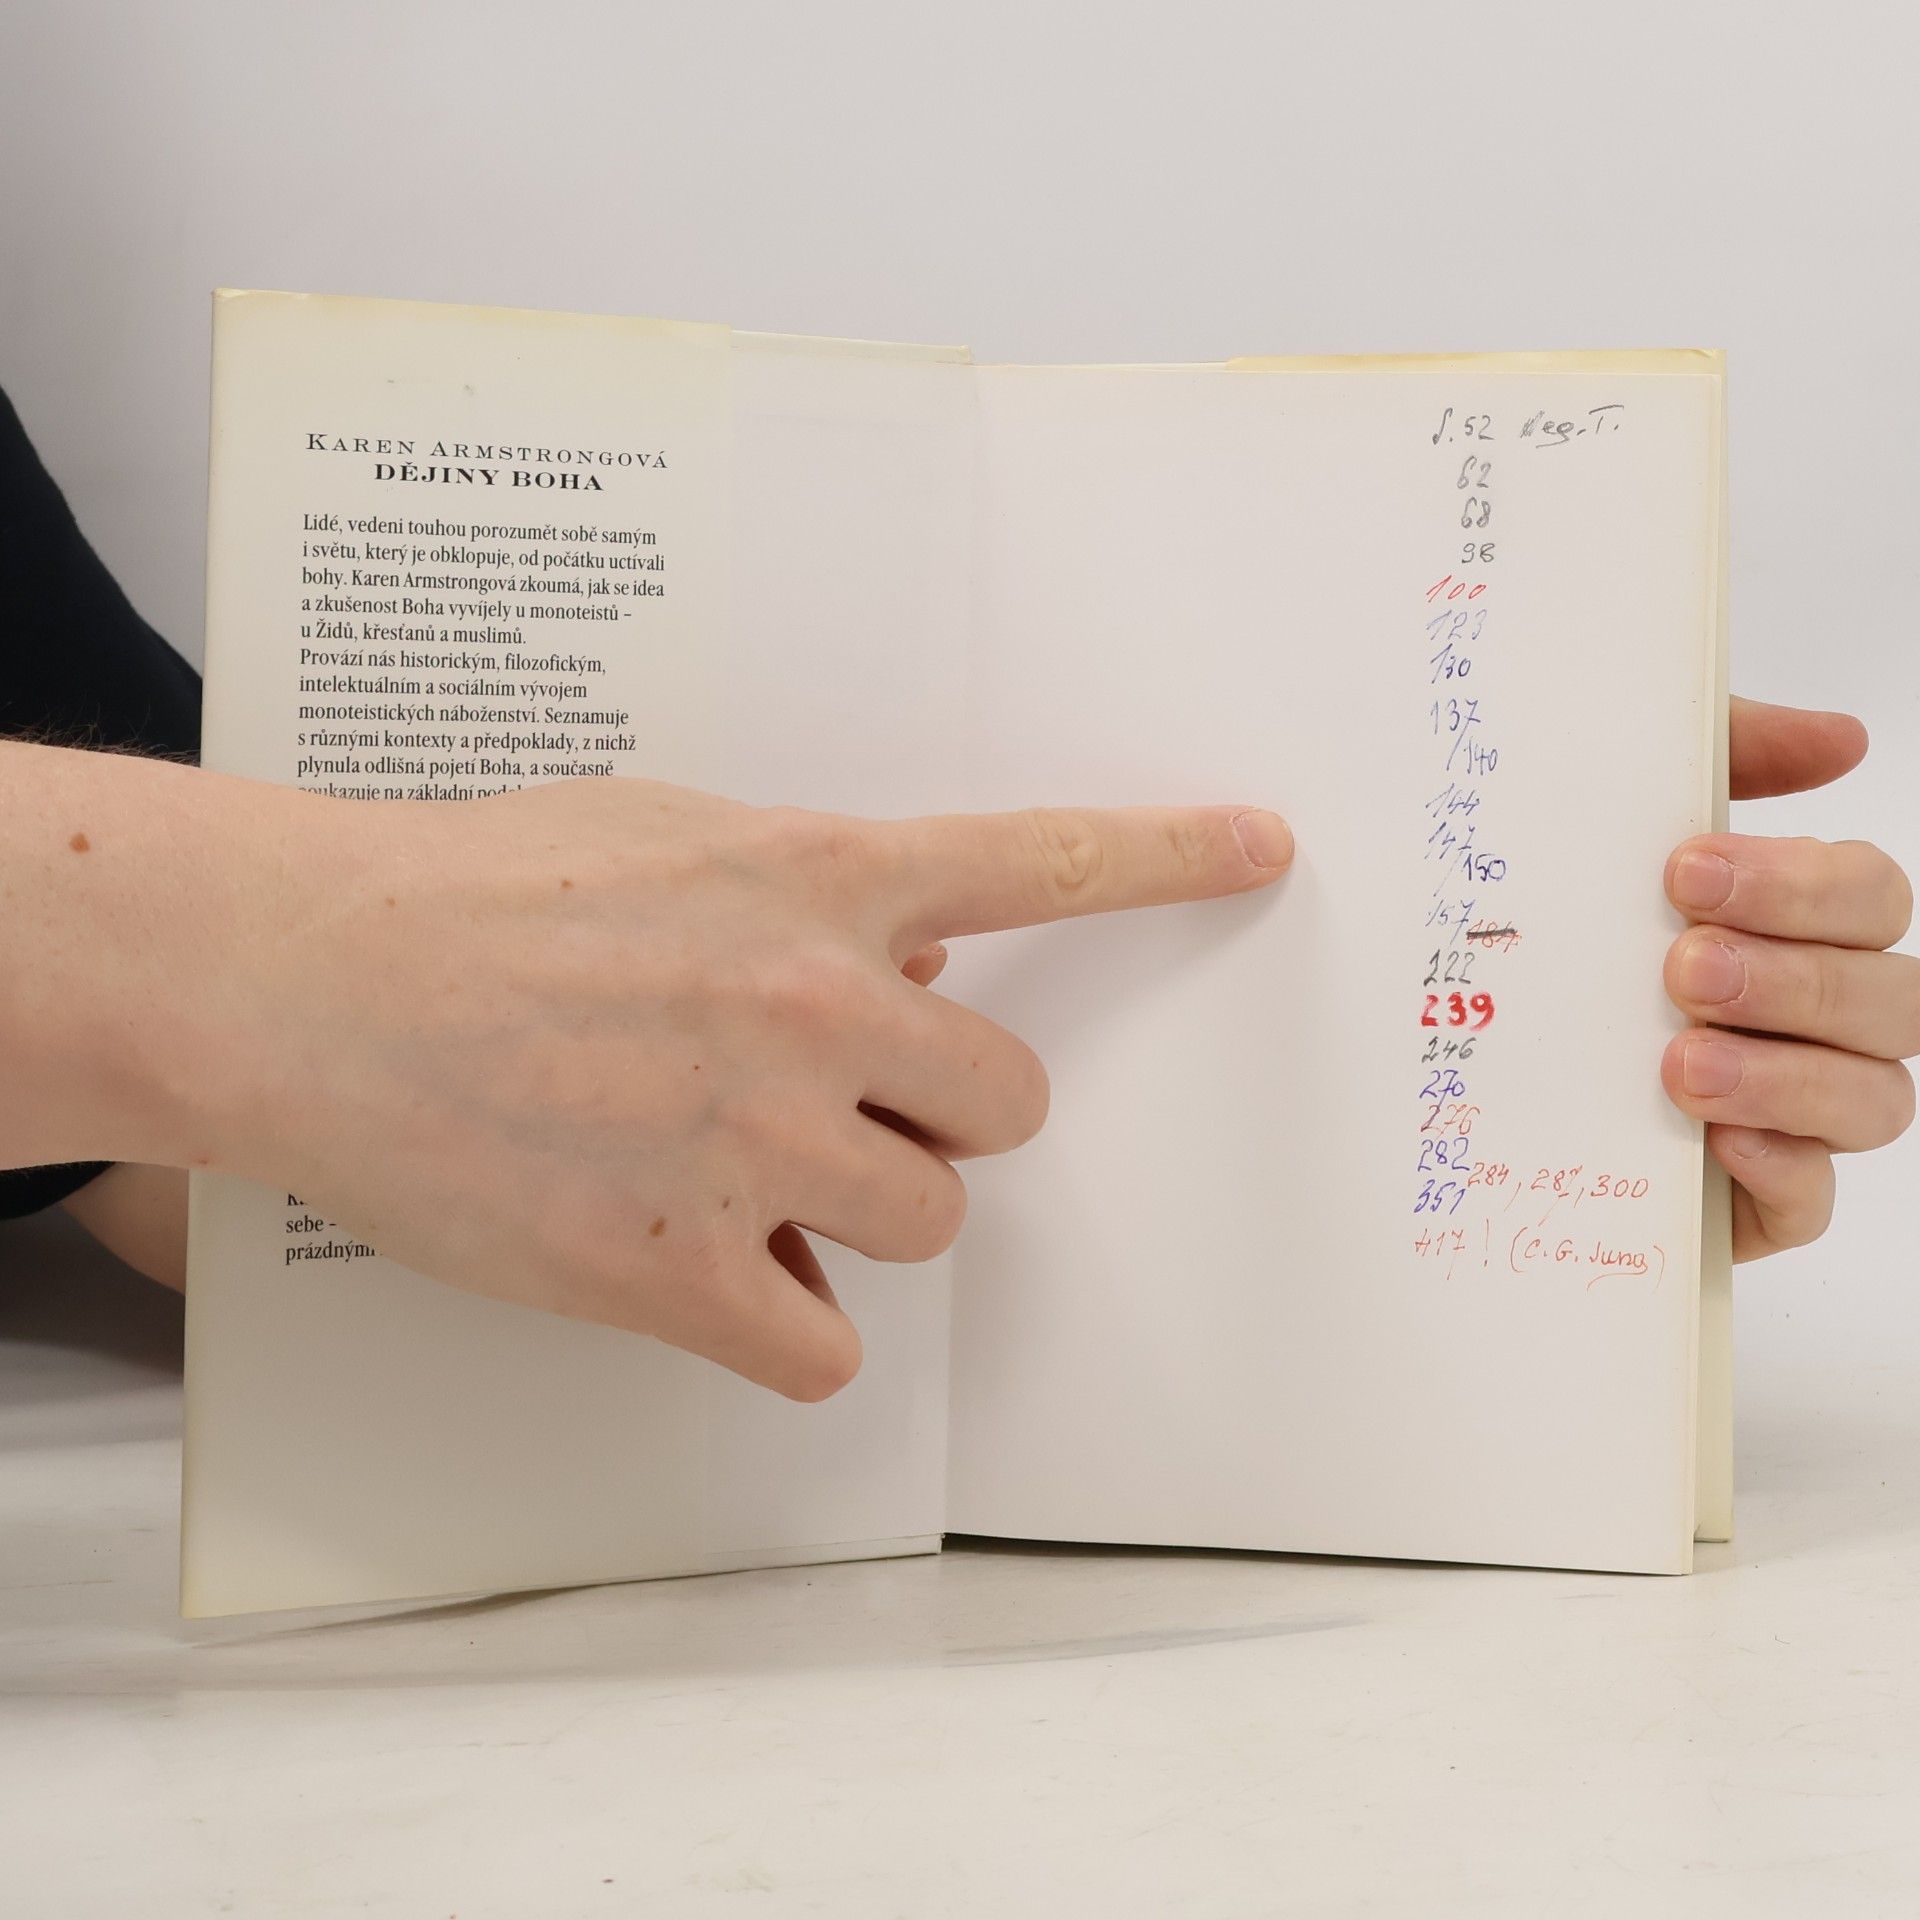 KAREN ARMSTRONGOVÁ
DĚJINY BOHA
Lidé, vedeni touhou porozumět sobě samým
i světu, který je obklopuje, od počátku uctívali
bohy. Karen Armstrongová zkoumá, jak se idea
a zkušenost Boha vyvíjely u monoteistů –
u Židů, křesťanů a muslimů.
Provází nás historickým, filozofickým,
intelektuálním a sociálním vývojem
monoteistických náboženství. Seznamuje
s různými kontexty a předpoklady, z nichž
plynula odlišná pojetí Boha, a současně
poukazuje na základní
sebe –
prázdnými
S. 52 Neg. T.
62
68
98
100
123
130
137
/140
144
147
/150
157
184
222
239
246
270
276
282
284, 287, 300
351
417! (C. G. Jung)